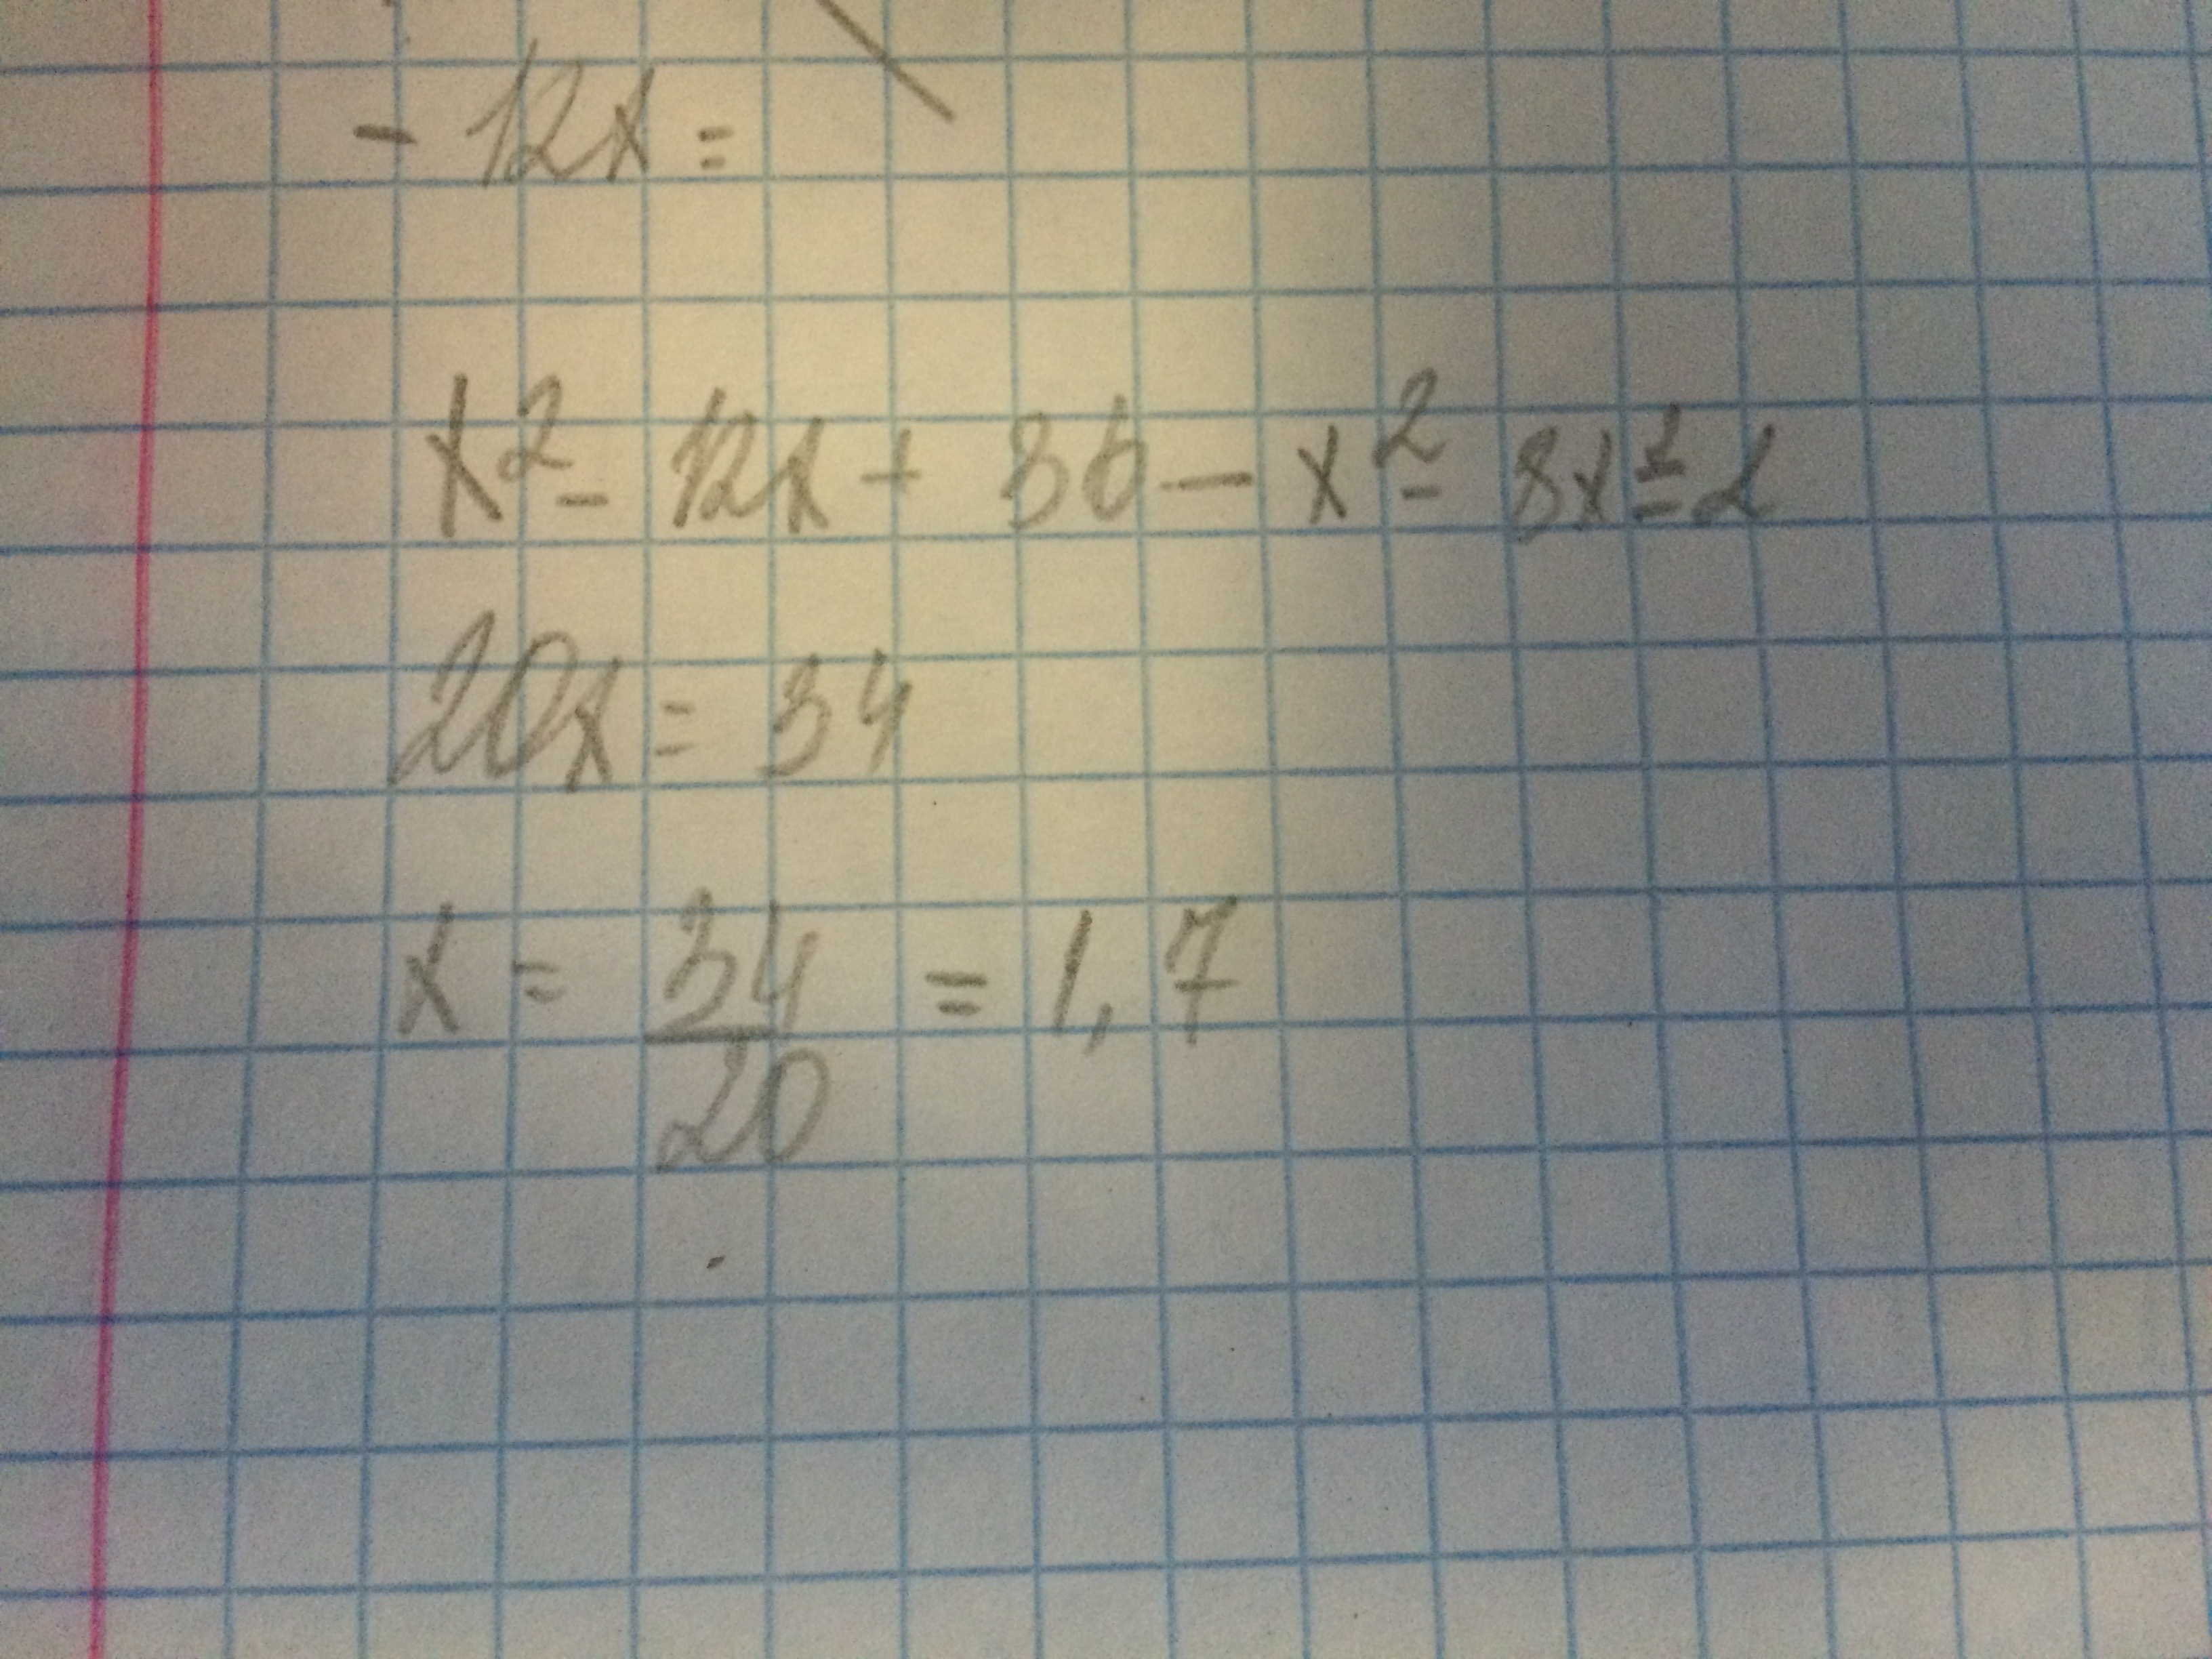 - 12x =
x² - 12x + 36 - x² - 8x = 2
20x = 34
x = 34/20 = 1,7